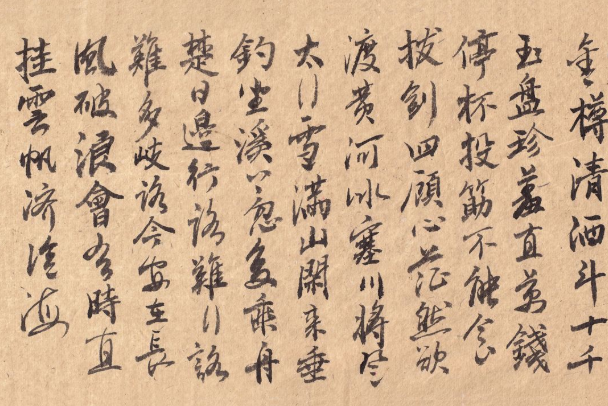 金樽清酒斗十千
玉盘珍羞直萬錢
停杯投筯不能食
拔劍四顧心茫然欲
渡黄河冰塞川將登
太行雪满山閑来垂
釣坐溪上忽复乘舟
梦日邊行路難行路
難多歧路今安在長
風破浪會有時直
挂雲帆济滄海